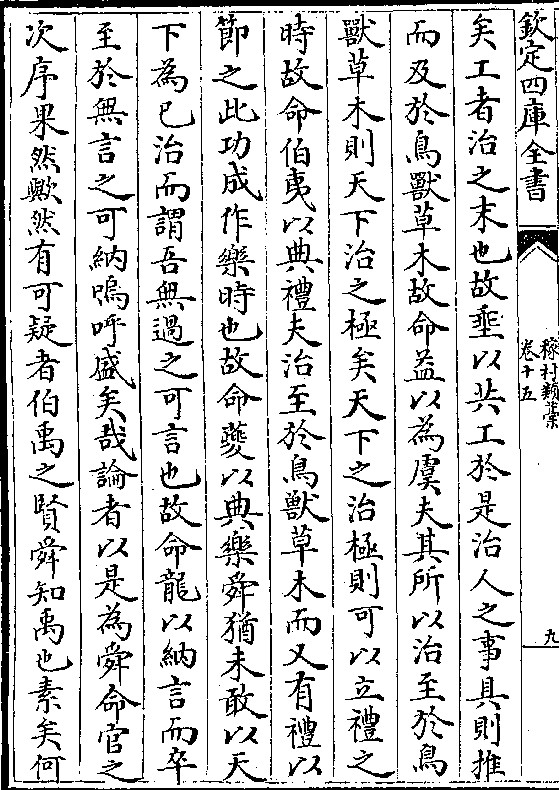 欽定四庫全書
稼村類藁
卷十五
九
矣工者治之末也故垂以共工於是治人之事具則推
而及於鳥獸草木故命益以為虞夫其所以治至於鳥
獸草木則天下治之極矣天下之治極則可以立禮之
時故命伯夷以典禮夫治至於鳥獸草木而又有禮以
節之此功成作樂時也故命夔以典樂舜猶未敢以天
下為已治而謂吾無過之可言也故命龍以納言而卒
至於無言之可納嗚呼盛矣哉論者以是為舜命官之
次序果然歟然有可疑者伯禹之賢舜知禹也素矣何